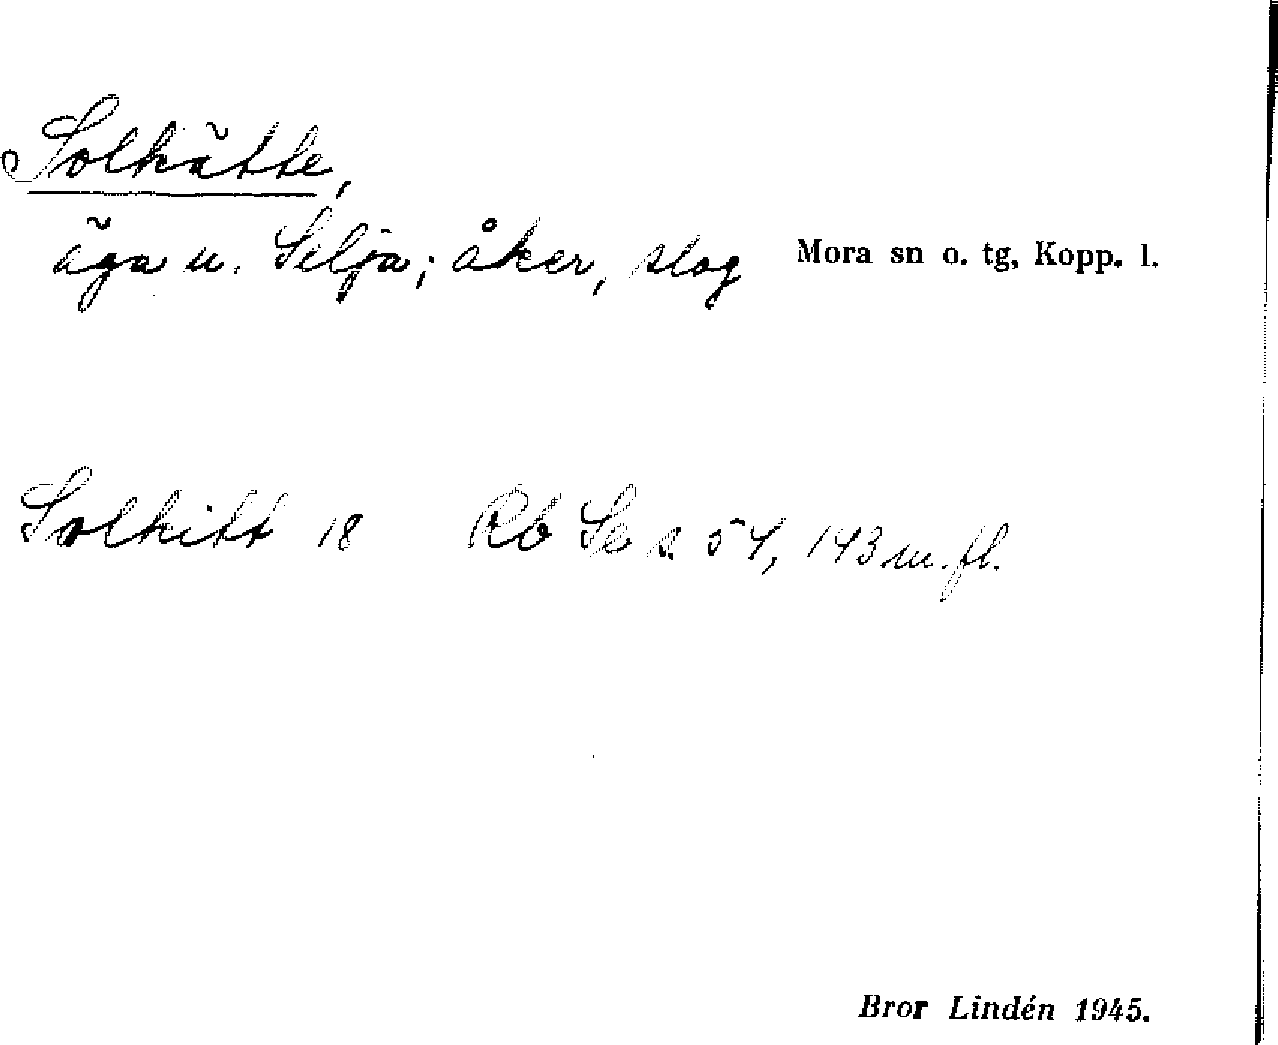 Solkätte,
äga u. Selja; åker, slog Mora sn o. tg, Kopp. l.
Solkitt 18 Rb Se s 54, 143 m. fl.
Bror Lindén 1945.